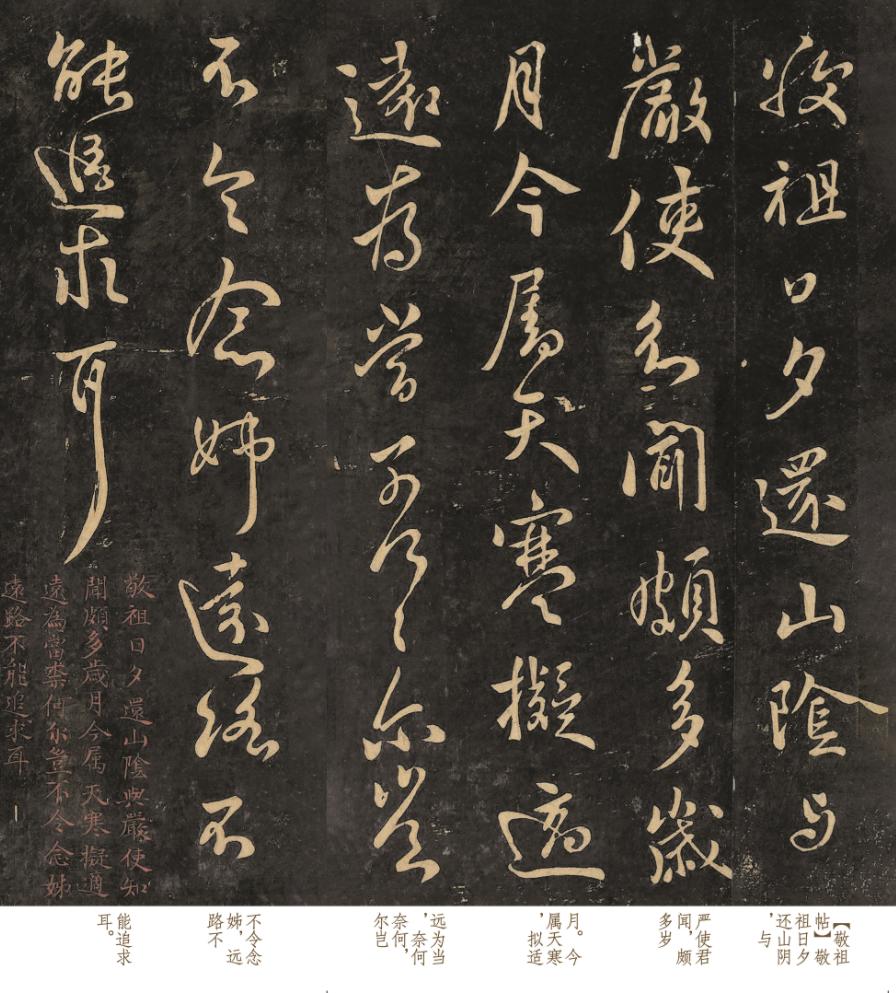 敬祖日夕還山陰与
嚴使君聞頗多歲
月今屬天寒擬適
遠為當奈何〻〻尔豈
不令念姊遠路不
能追求耳
敬祖日夕還山陰與嚴使知
聞頗多歲月今属天寒擬適
遠為當柰何尔豈不令念姊
遠路不能追求耳
【敬祖
帖】敬
祖日夕
还山阴
，与
严使君
闻，颇
多岁
月。今
属天寒
，拟适
远为当
，奈何
奈何，
尔岂
不令念
姊，远
路不
能追求
耳。